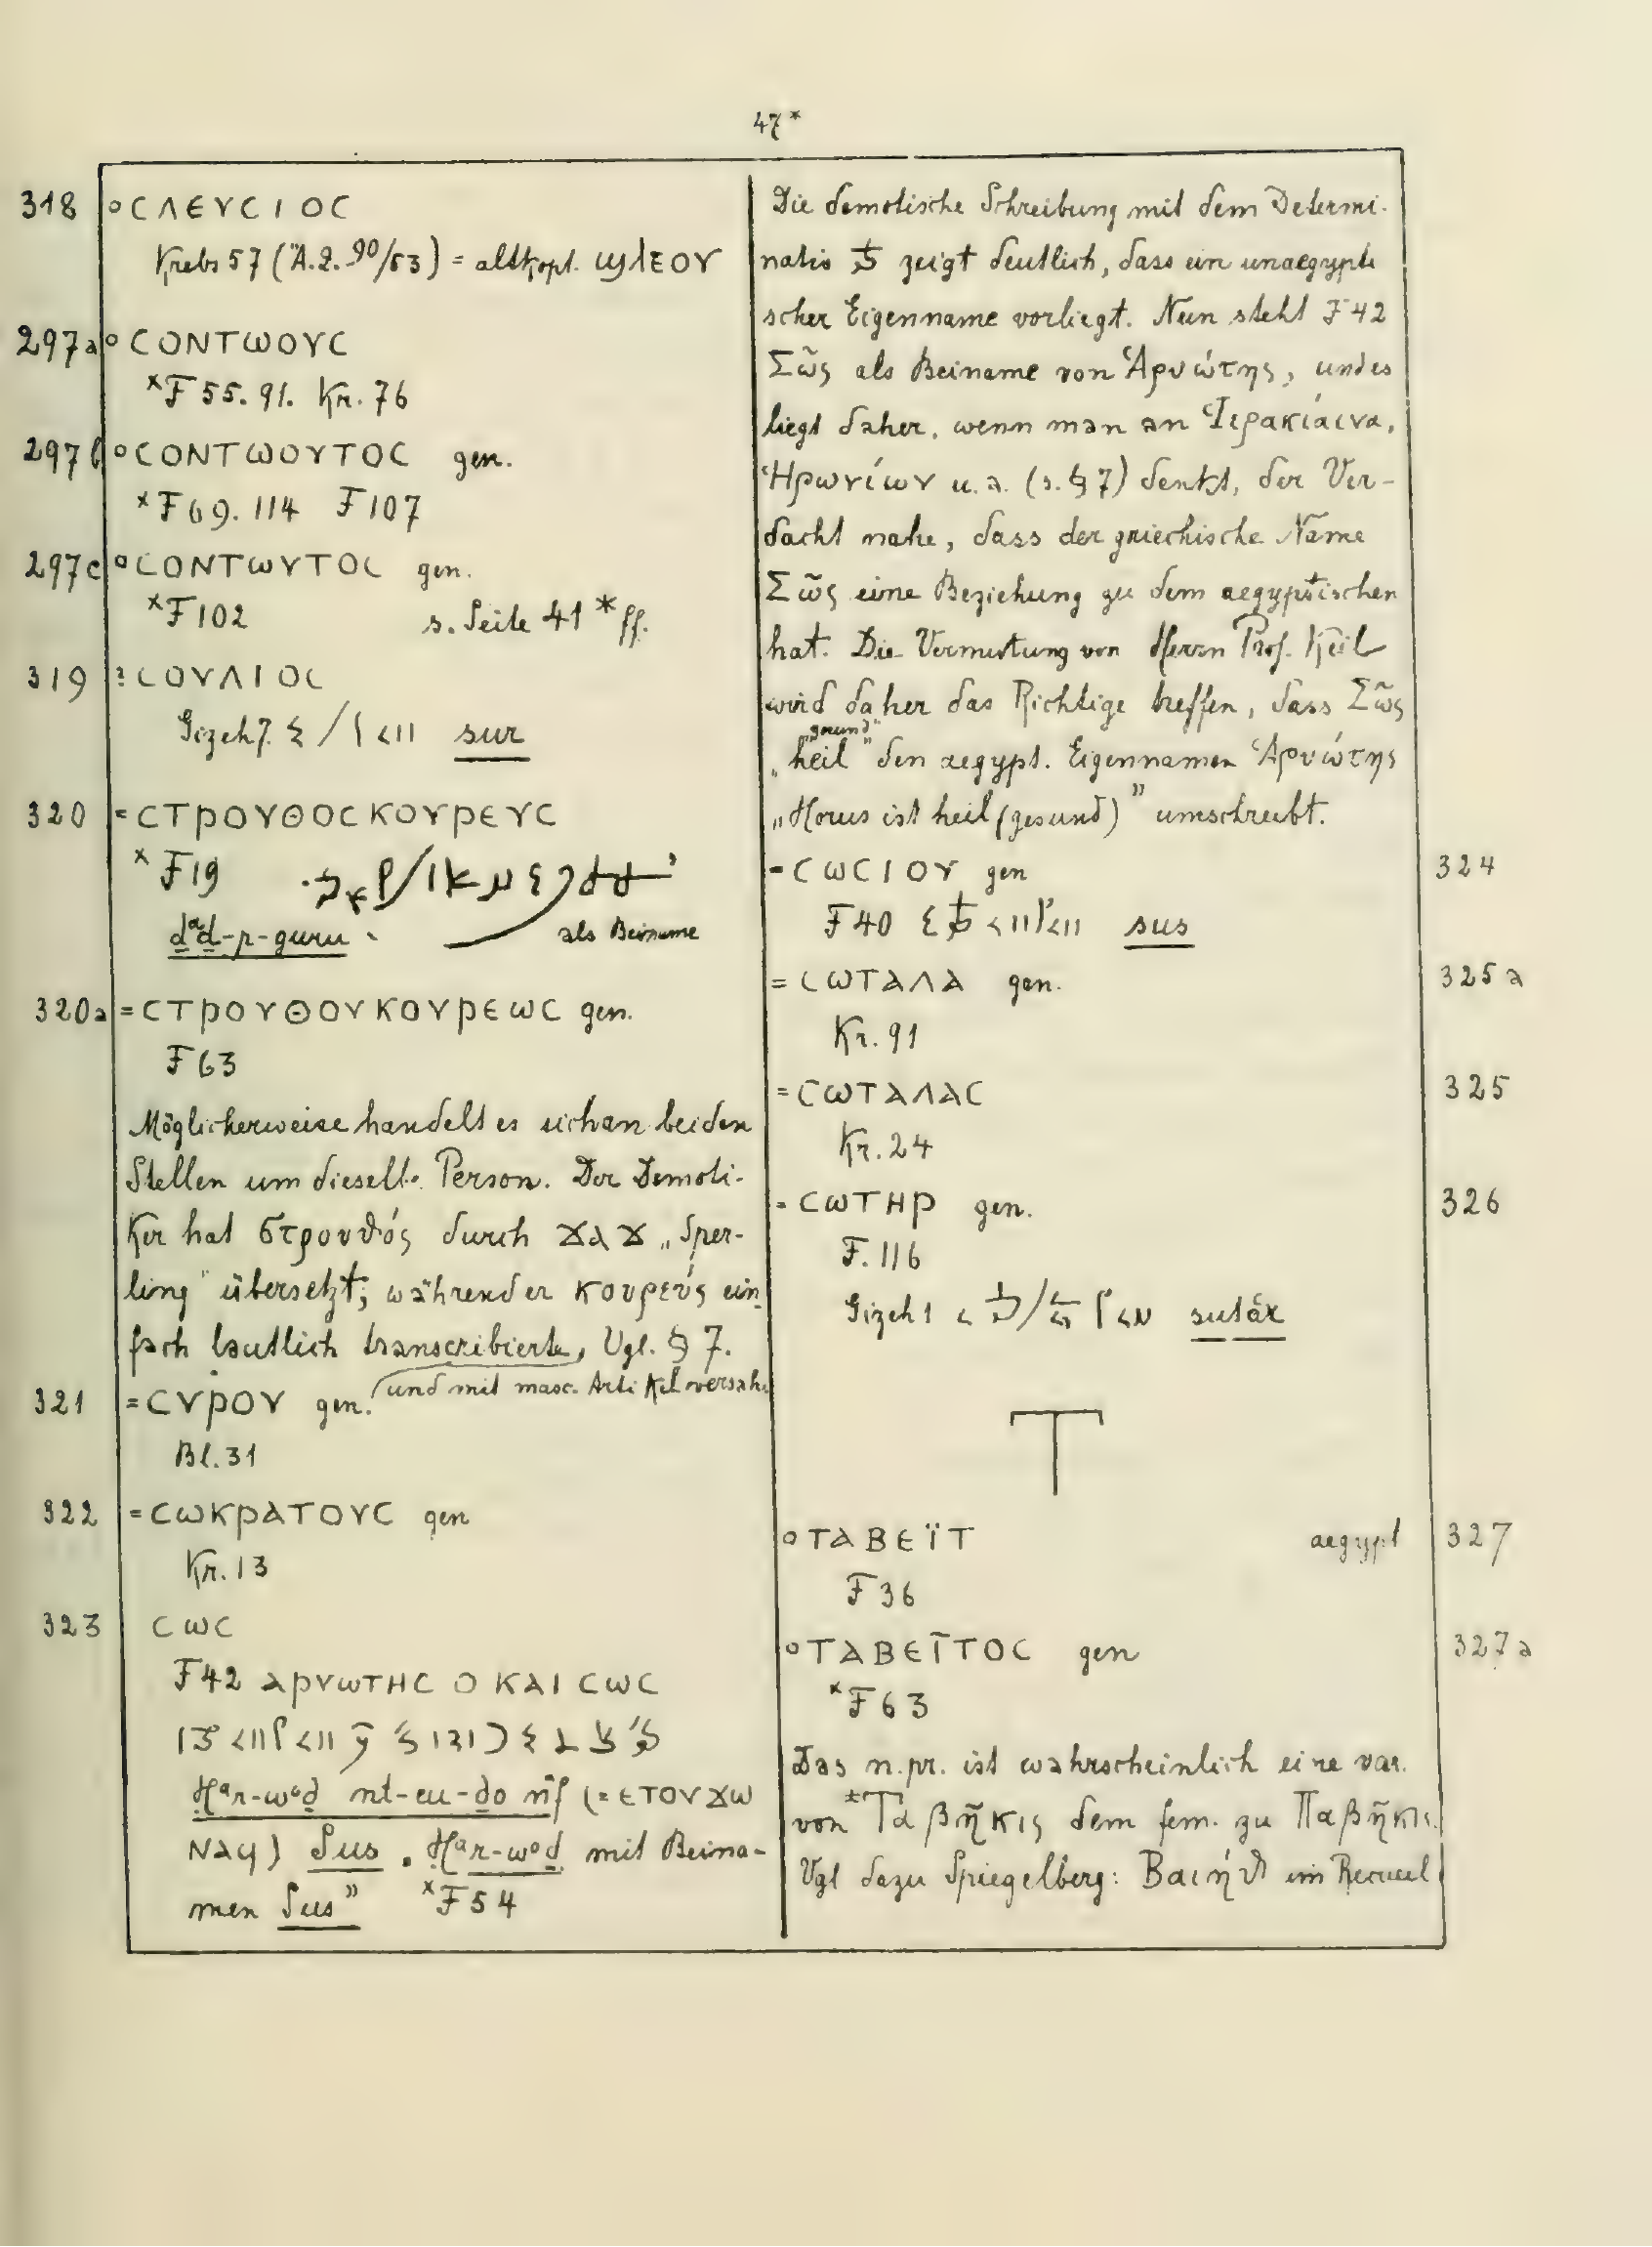 47*
318 °CΛEYCIOC
Krebs 57 (Ä.Z. 90/53) = altkopt. ϣλεογ
297a °CONTWOYC
*F 55. 91. Kr. 76
297b °CONTWOYTOC gen.
*F 69. 114 F 107
297c °CONTWYTOC gen.
*F 102 s. Seite 41* ff.
319 ?COYΛIOC
Gizeh 7. sur
320 =CTPOYΘOCKOYPEYC
*F 19
dᵃd-p-guru als Beiname
320a =CTPOYΘOYKOYPEWC gen.
F 63
Möglicherweise handelt es sich an beiden
Stellen um dieselbe Person. Der Demoti-
ker hat στρουθός durch ϫⲁϫ „Sper-
ling" übersetzt, während er κουρεύς ein
fach lautlich transcribierte, Vgl. § 7.
(und mit masc. Artikel versah.
321 =CYPOY gen.
Bl. 31
322 =CWKPATOYC gen
Kr. 13
323 CWC
F 42 APYWTHC O KAI CWC
Hᵃr-wᵒd nt-eu-do n f (= ⲉⲧⲟⲩϫⲱ
ⲛⲁϥ) Sus „Hᵃr-wᵒd mit Beina-
men Sus" *F 54
Die demotische Schreibung mit dem Determi-
nativ zeigt deutlich, dass ein unaegypti
scher Eigenname vorliegt. Nun steht F 42
Σῶς als Beiname von Ἁρυώτης, und es
liegt daher, wenn man an Ἱερακίαινα,
Ἡρωνίων u. a. (s. § 7) denkt, der Ver-
dacht nahe, dass der griechische Name
Σῶς eine Beziehung zu dem aegyptischen
hat. Die Vermutung von Herrn Prof. Keil
wird daher das Richtige treffen, dass Σῶς
„heil" den aegypt. Eigennamen Ἁρυώτης
„Horus ist heil (gesund)" umschreibt.
=CWCIOY gen 324
F 40 sus
=CWTAΛA gen. 325a
Kr. 91
=CWTAΛAC 325
Kr. 24
=CWTHP gen. 326
F. 116
Gizeh 1 sutár
T
°TABEÏT aegypt 327
F 36
°TABEÏTOC gen 327a
*F 63
Das n. pr. ist wahrscheinlich eine var.
von *Ταβῆκις dem fem. zu Παβῆκις.
Vgl dazu Spiegelberg: Βαιήθ im Recueil